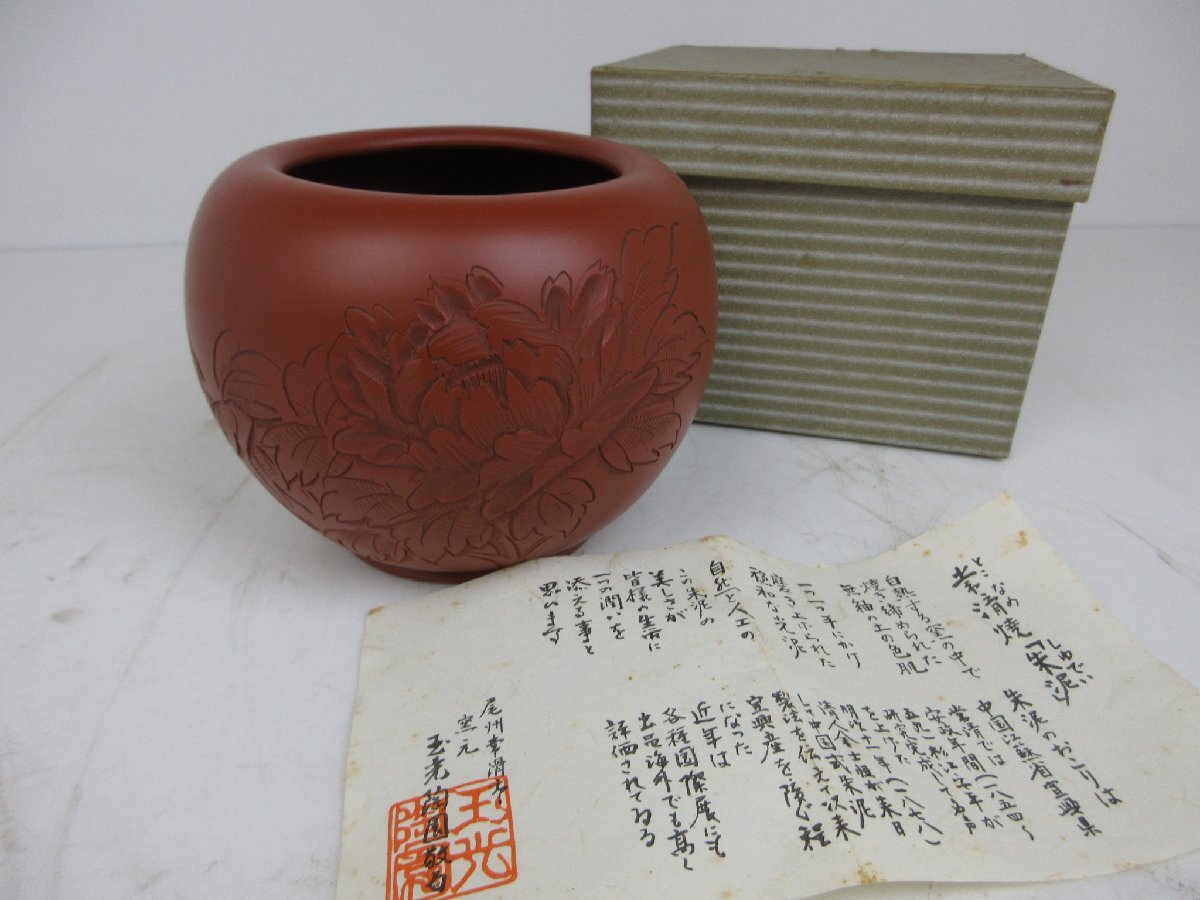 とこなめ
常滑焼「朱泥」
しゅでい
白熱する窯の中で
焼き締められた
無釉の土の色肌
一つ一つ手にかけ
磨き上げられた
自然と人工の
この朱泥の
美しさが
皆様の生活に
一つの潤いを
添える事と
思います
朱泥のおこりは
中国江蘇省宜興県
常滑では(一八五四〜
安政年間
研究完成して名声
を上げた
明治十一年(一八七八)
清人金士恒が来日
し中国式朱泥
製法を伝えて以来
宜興産を凌ぐ程
になった
近年は
各種国際展にも
出品海外でも高く
評価されてゐる
尾州常滑
窯元
玉光陶園敬白
玉光